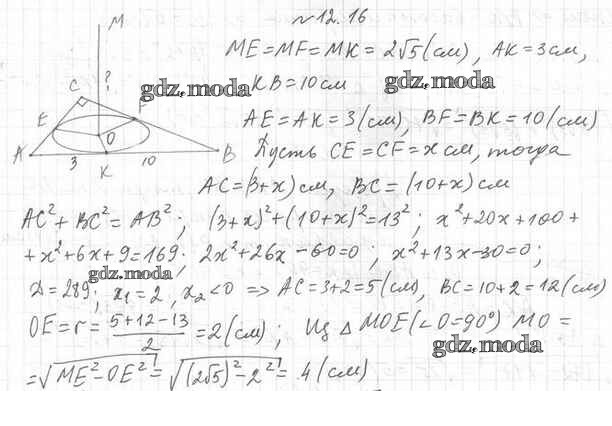 № 12.16
M
ME = MF = MK = 2√5 (см), AK = 3 см,
gdz.moda
KB = 10 см
gdz.moda
C
?
F
E
O
A
3
K
10
B
AE = AK = 3 (см), BF = BK = 10 (см)
Пусть CE = CF = x см, тогда
AC = (3+x) см, BC = (10+x) см
AC² + BC² = AB²; (3+x)² + (10+x)² = 13²; x² + 20x + 100 +
+ x² + 6x + 9 = 169; 2x² + 26x − 60 = 0; x² + 13x − 30 = 0;
gdz.moda
D = 289; x₁ = 2, x₂ < 0 ⇒ AC = 3+2 = 5 (см), BC = 10+2 = 12 (см)
OE = r = (5+12−13)/2 = 2 (см); Из △ MOE (∠O = 90°) MO =
gdz.moda
= √(ME² − OE²) = √((2√5)² − 2²) = 4 (см)